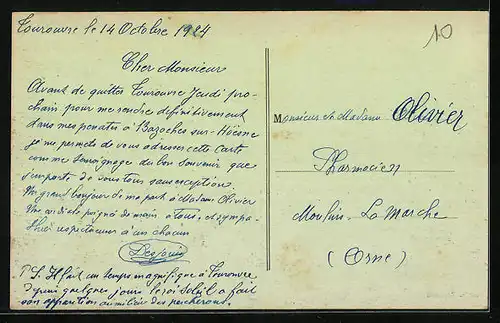 Tourouvre le 14 Octobre 1924
10
Cher Monsieur
Avant de quitter Tourouvre Jeudi pro-
chain pour me rendre définitivement
dans mes pénates à Bazoches-sur-Hoësne
je me permets de vous adresser cette Carte
comme témoignage du bon souvenir que
j'emporte de vous tous sans exception.
Un grand bonjour de ma part à Madame Olivier
Une cordiale poignée de main à tous, et sympa-
thies respectueuses à un chacun
P.S. Il fait un temps magnifique à Tourouvre
depuis quelques jours le roi Soleil a fait
son apparition au milieu des
Monsieur et Madame Olivier
Pharmacien
Moulins La Marche
(Orne)